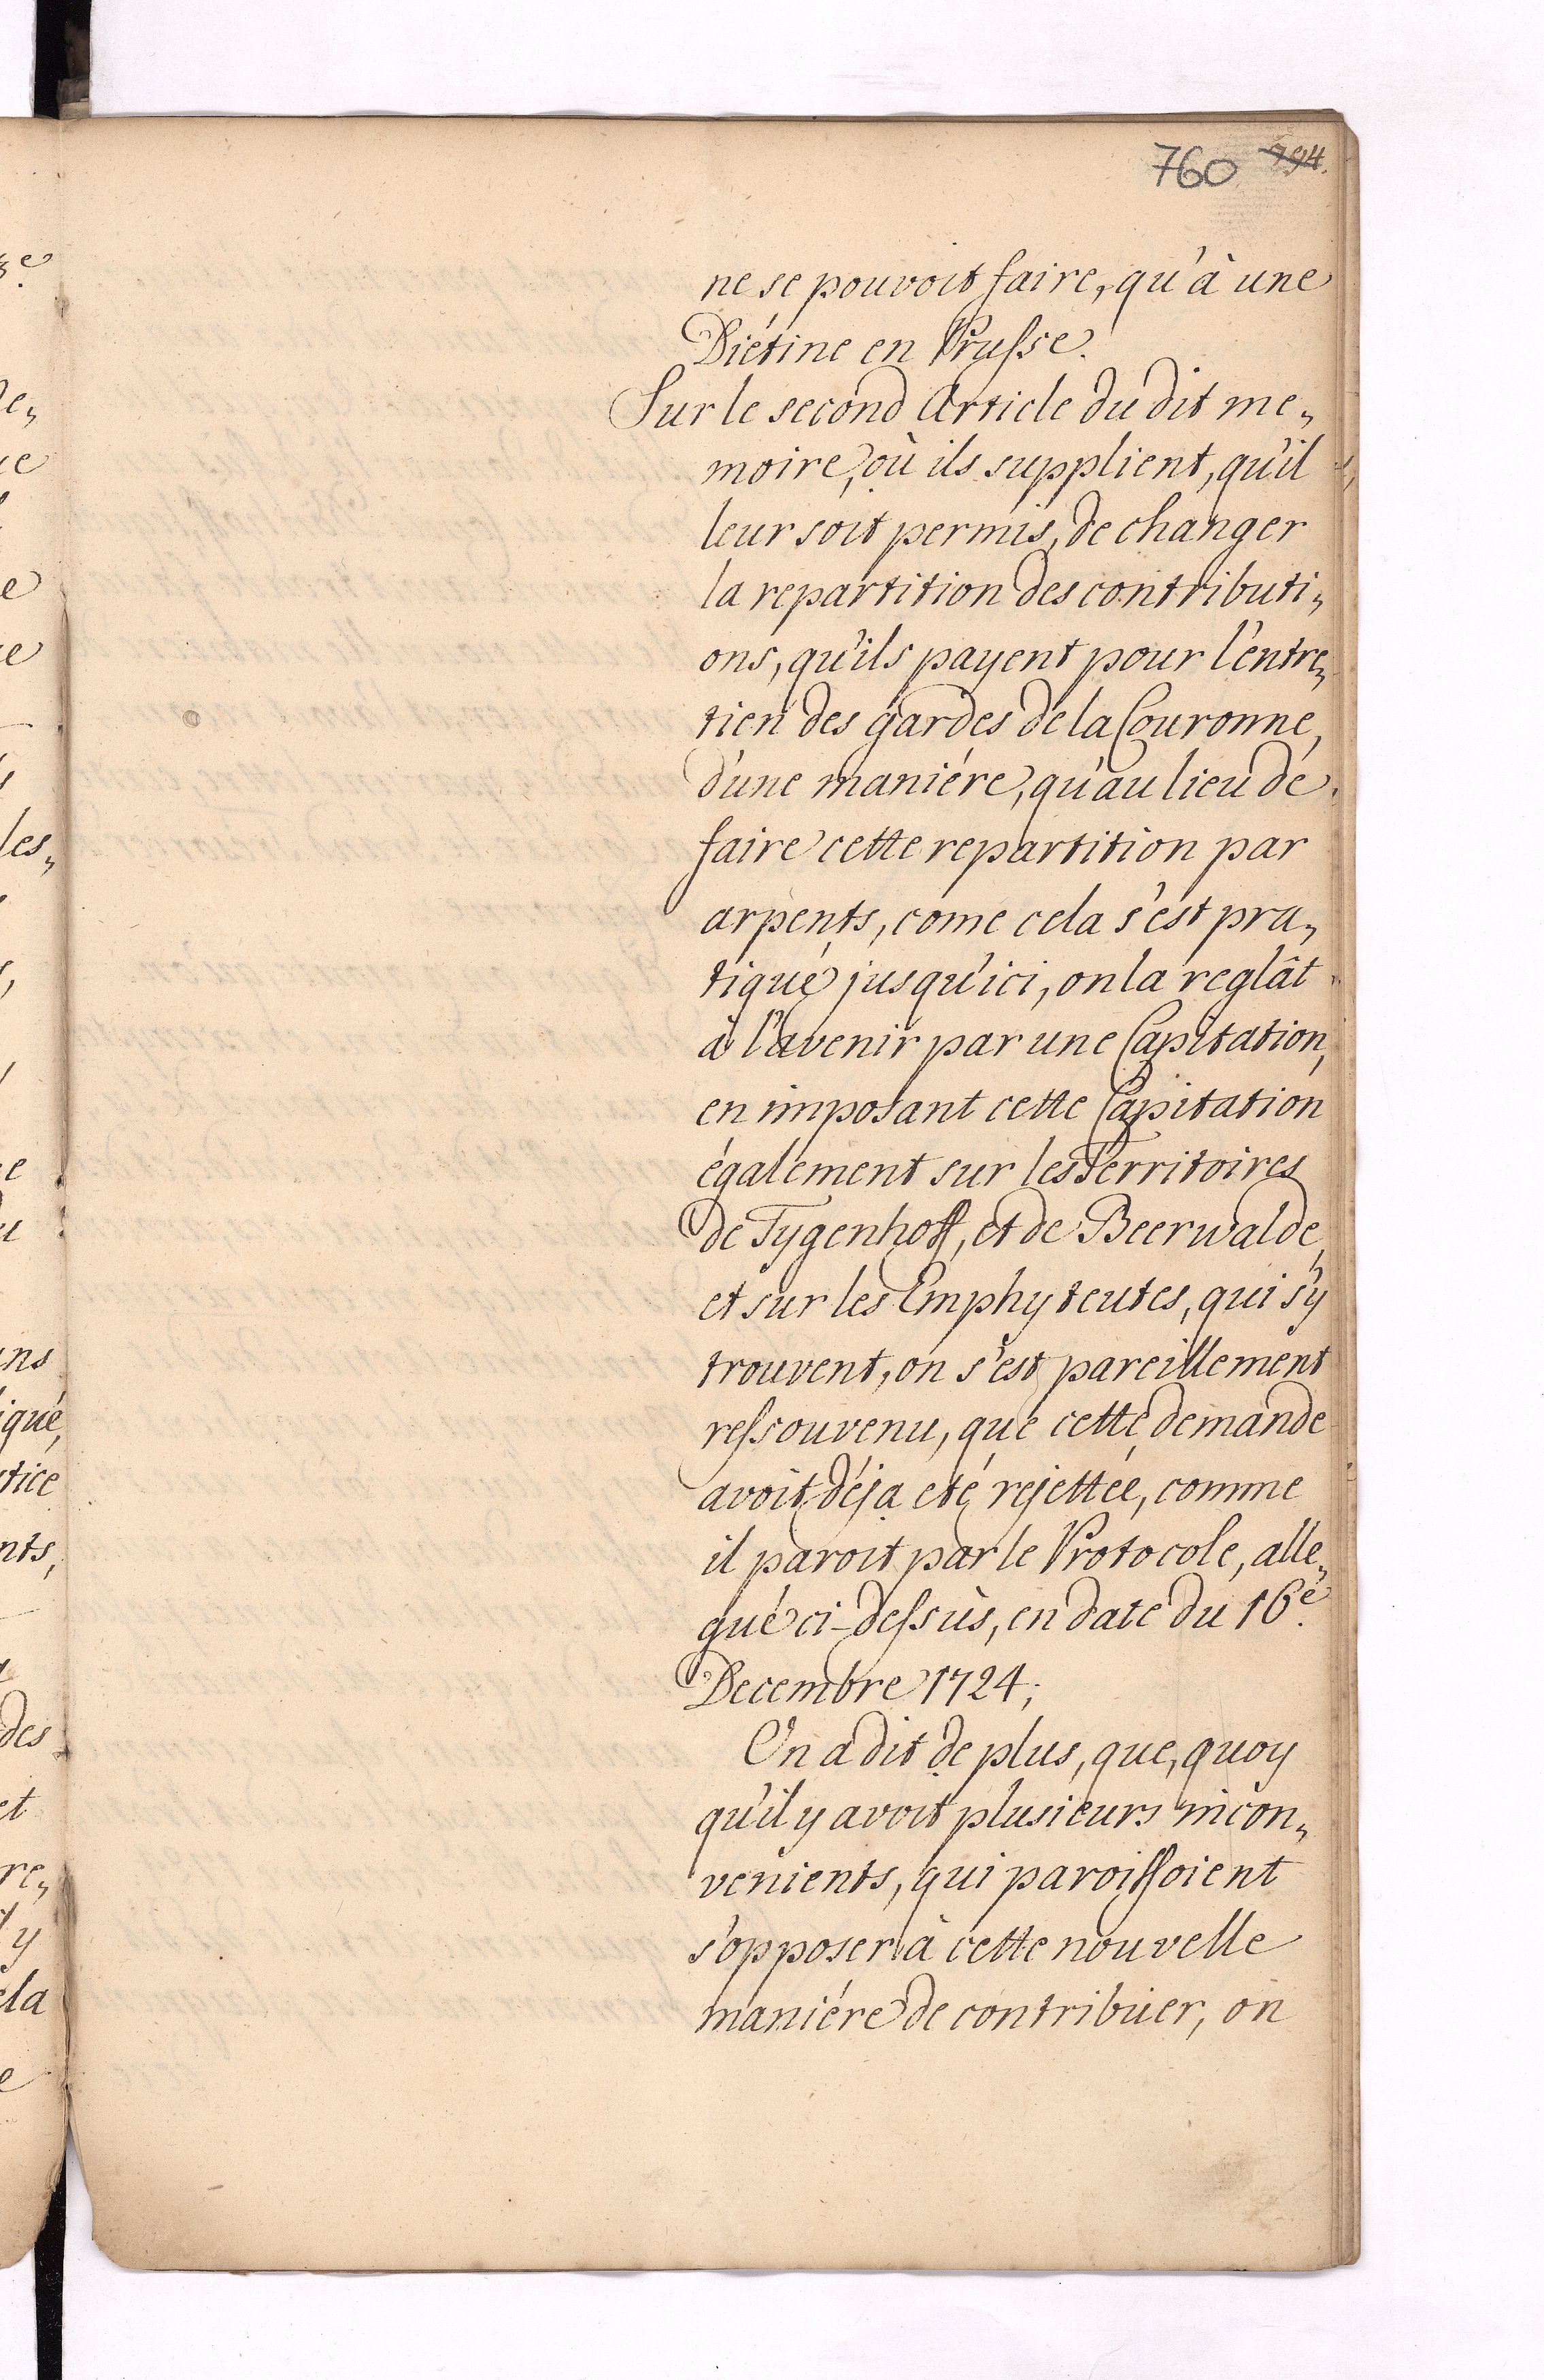 760 794.
ne se pouvoit faire, qu'à une
Diétine en Prusse.
Sur le second Article du dit me„
moire, où ils supplient, qu'il
leur soit permis, de changer
la repartition des contributi„
ons, qu'ils payent pour l'entre„
tien des gardes de la Couronne,
d'une maniére, qu'au lieu de
faire cette repartition par
arpents, come cela s'est pra„
tiqué jusqu'ici, on la reglât
à l'avenir par une Capitation,
en imposant cette Capitation
également sur les Territoires
de Tygenhoff, et de Beerwalde,
et sur les Emphyteutes, qui s'y
trouvent, on s'est pareillement
ressouvenu, que cette demande
avoit déja eté rejettée, comme
il paroit par le Protocole, alle„
gué ci-dessùs, en date du 16e.
Decembre 1724;
On a dit de plus, que, quoy
qu'il y avoit plusieurs incon„
venients, qui paroissoient
s'opposer à cette nouvelle
maniére de contribuer, on